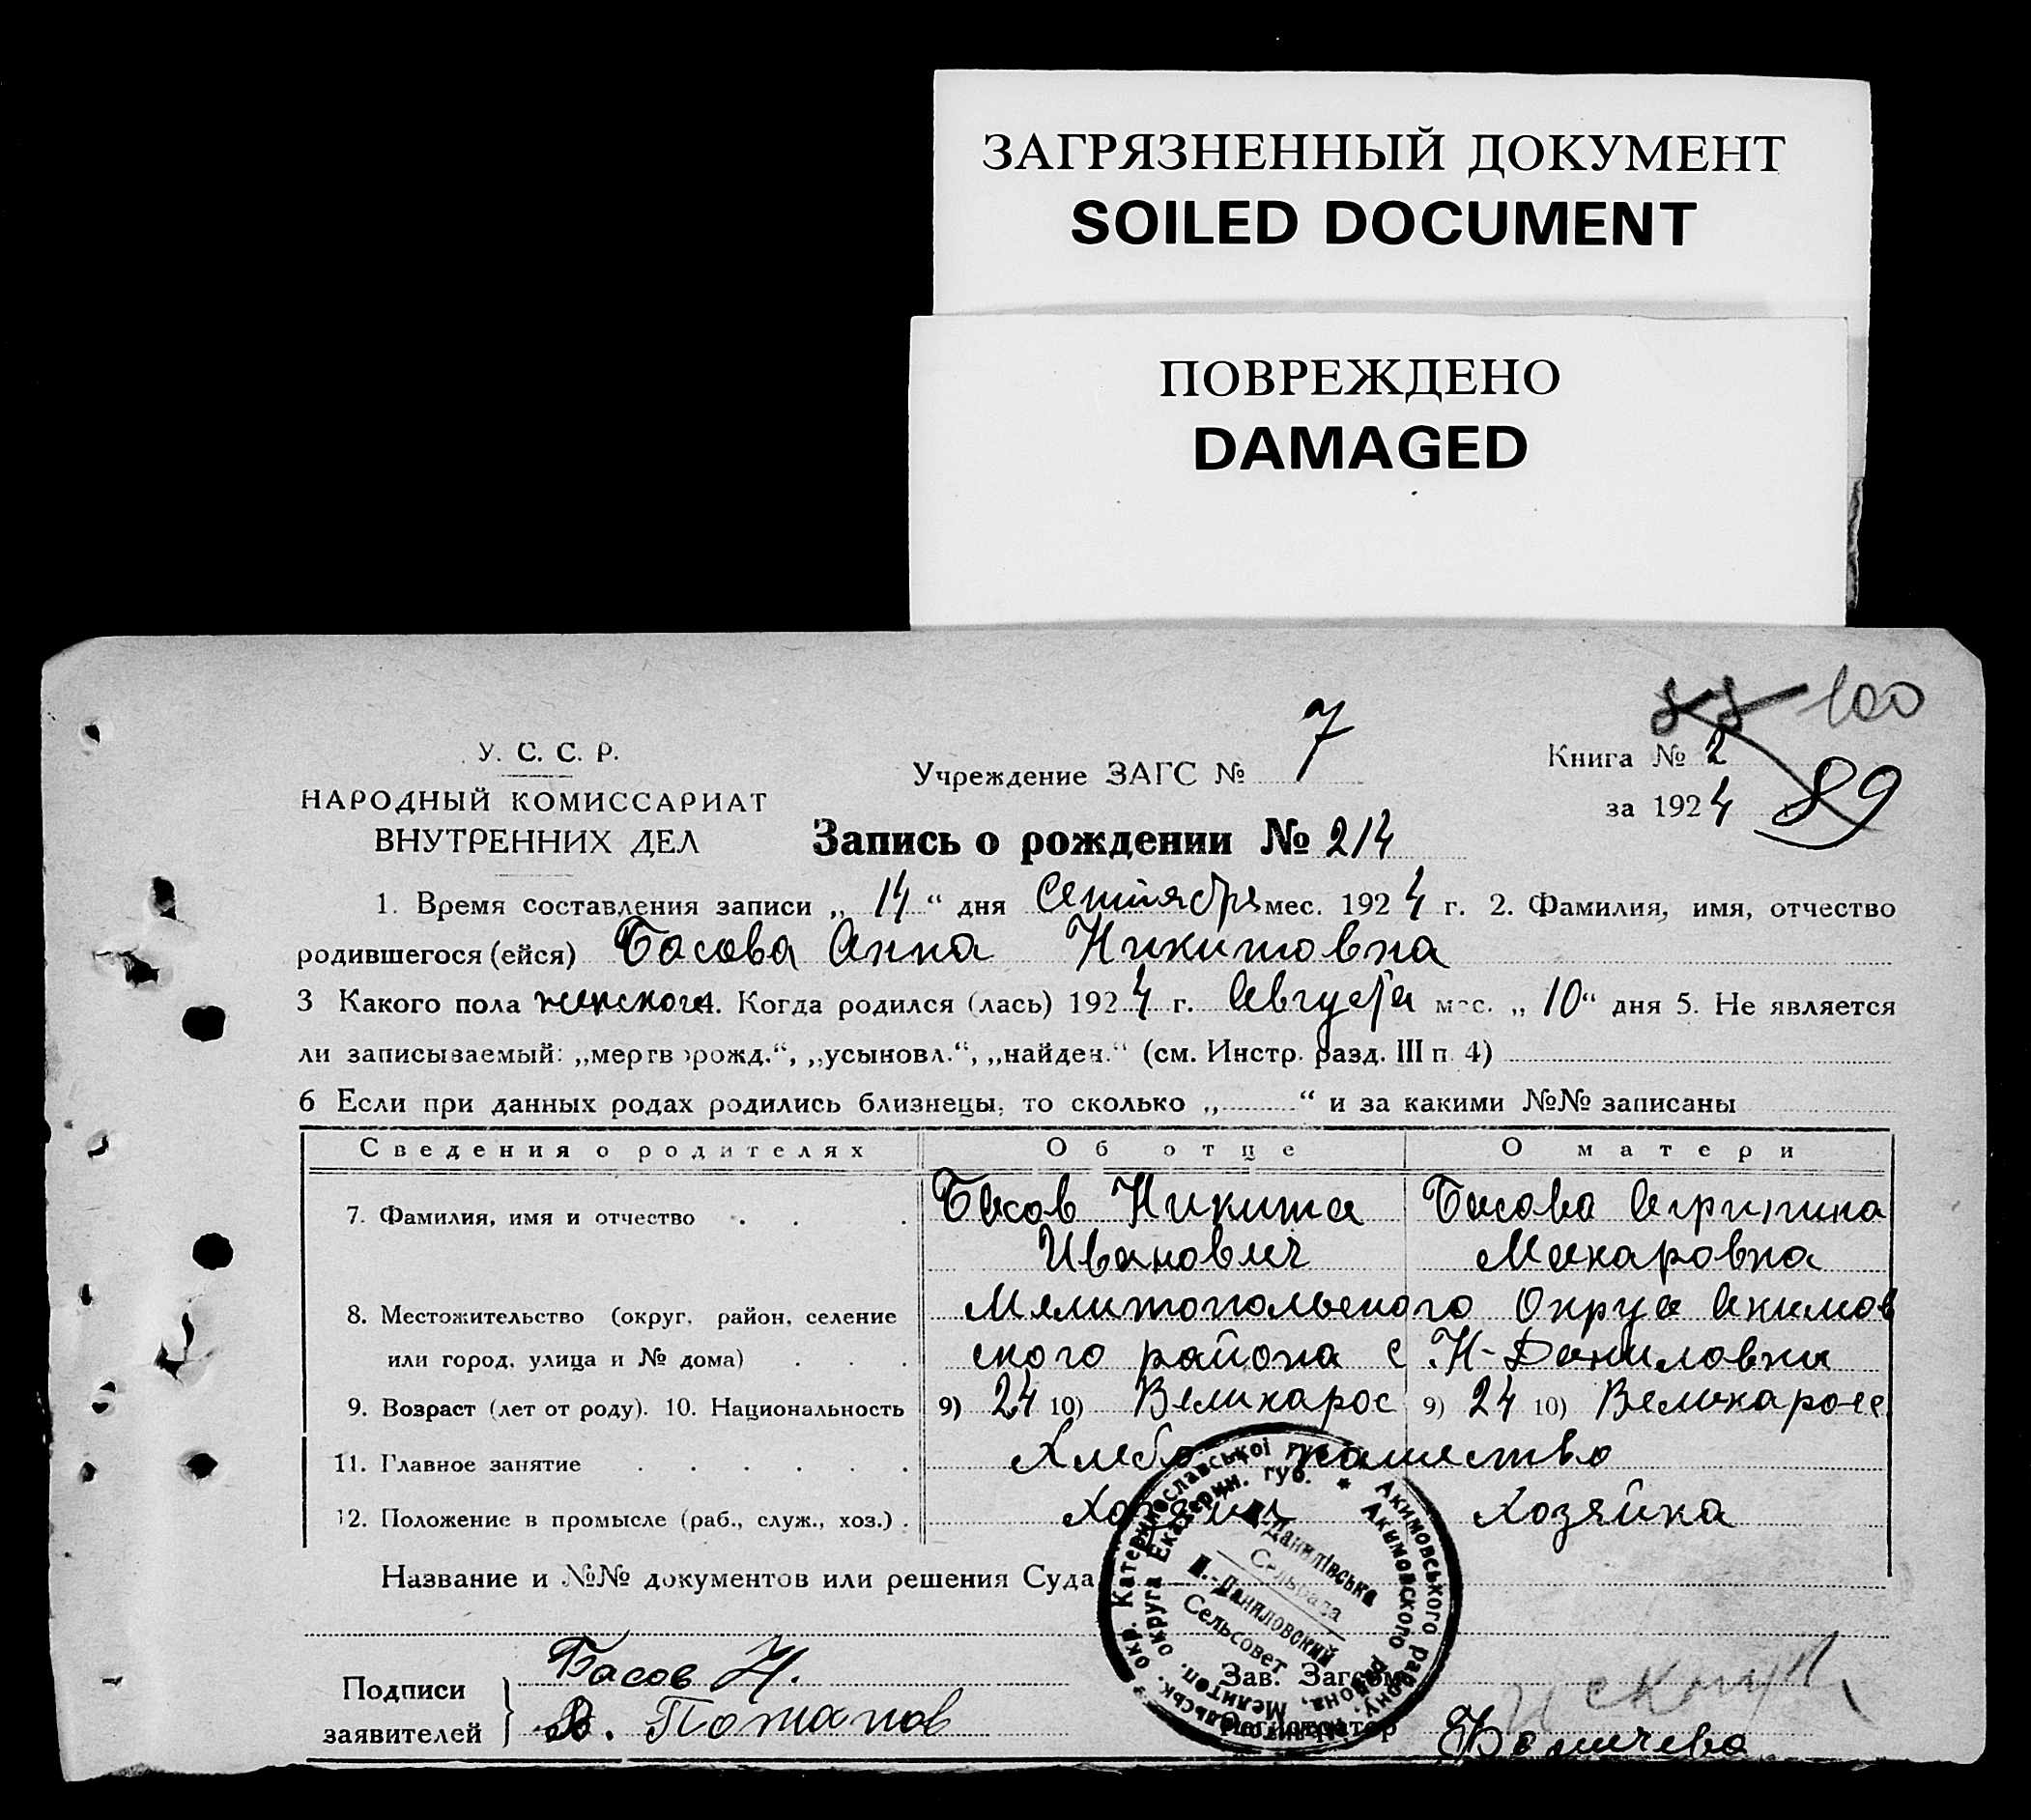 ЗАГРЯЗНЕННЫЙ ДОКУМЕНТ
SOILED DOCUMENT
ПОВРЕЖДЕНО
DAMAGED
100
У. С. С. Р.
НАРОДНЫЙ КОМИССАРИАТ
ВНУТРЕННИХ ДЕЛ
Учреждение ЗАГС № 7
Книга № 2
за 1924
89
Запись о рождении № 214
1. Время составления записи „ 14 “ дня Сентября мес. 1924 г. 2. Фамилия, имя, отчество
родившегося (ейся) Басова Анна Никитовна
3 Какого пола женского 4. Когда родился (лась) 1924 г. Августа мес. „ 10 “ дня 5. Не является
ли записываемый: „мертворожд.“, „усыновл.“, „найден.“ (см. Инстр. разд. III п. 4)
6 Если при данных родах родились близнецы, то сколько „ “ и за какими №№ записаны
Сведения о родителях Об отце О матери
7. Фамилия, имя и отчество Басов Никита Басова Агрипина
Иванович Макаровна
8. Местожительство (округ, район, селение Мелитопольского Округа Акимов
или город, улица и № дома) ского района с. Н-Даниловки
9. Возраст (лет от роду). 10. Национальность 9) 24 10) Великарос 9) 24 10) Великаросс
11. Главное занятие Хлебопашество
12. Положение в промысле (раб., служ., хоз.) Хозяин Хозяйка
Название и №№ документов или решения Суда
Н.-Данилівська
Сельрада
Н.-Даниловский
Сельсовет
Акимовського району, окр. Катеринославської губ.
Акимовского района, Мелитоп. округа Екатерин. губ.
Подписи
заявителей
Басов Н.
В. Потапов
Зав. Загсом
Регистратор